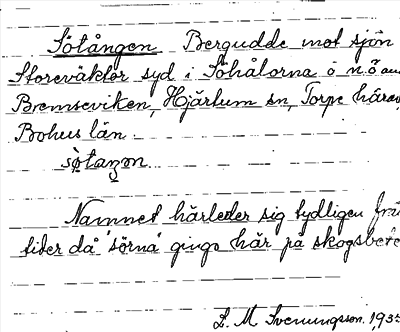 Sötången Bergudde mot sjön
Storeväktor syd i Söhålorna o n.ö au
Bremseviken, Hjärtum sn, Torpe härad,
Bohus län.
søtaŋən
Namnet härleder sig tydligen från
tider då 'sörna' gingo här på skogsbete
L. M. Svenungsson. 1935